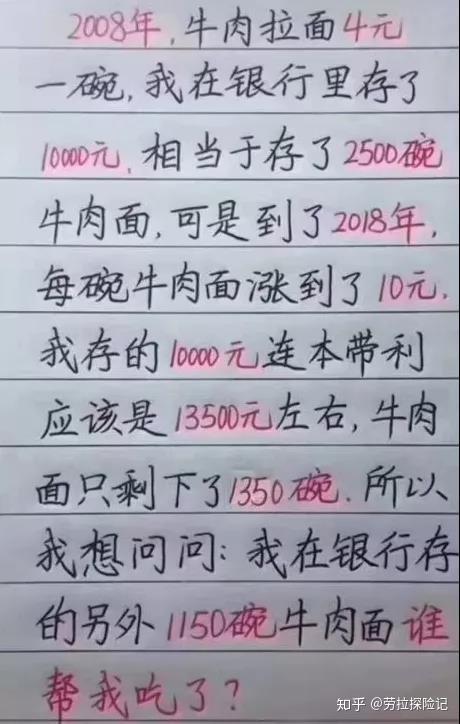 2008年,牛肉拉面4元
一碗,我在银行里存了
10000元,相当于存了2500碗
牛肉面,可是到了2018年,
每碗牛肉面涨到了10元.
我存的10000元连本带利
应该是13500元左右,牛肉
面只剩下了1350碗.所以
我想问问:我在银行存
的另外1150碗牛肉面谁
帮我吃了?
知乎 @劳拉探险记